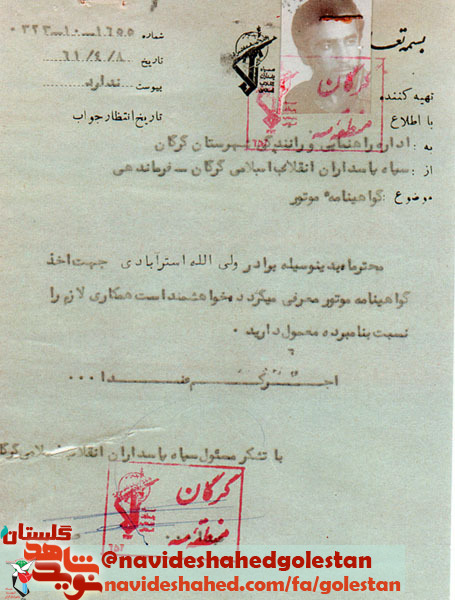 بسمه تعا
شماره ۱۶۵۵-۱۰-۳۲۳۰
تاریخ ۶۱/۴/۸
پیوست ندارد
تهیه کننده
با اطلاع
تاریخ انتظار جواب
گرگان
منطقه سه
757
به : اداره راهنمایی و رانندگی شهرستان گرگان
از : سپاه پاسداران انقلاب اسلامی گرگان - فرماندهی
موضوع : گواهینامه موتور
محترما بدینوسیله برادر ولی الله استرابادی جهت اخذ
گواهینامه موتور معرفی میگردد خواهشمند است همکاری لازم را
نسبت بنامبرده معمول دارید .
اجرکم عندا ...
با تشکر مسئول سپاه پاسداران انقلاب اسلامی گرگا
گرگان
منطقه سه
757
گلستان
نوید شاهد
@navideshahedgolestan
navideshahed.com/fa/golestan